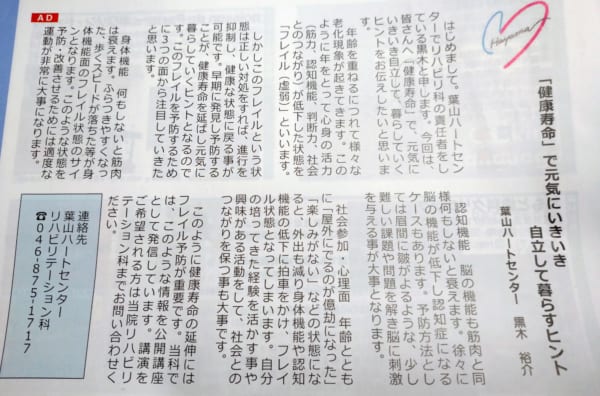 Hayama
「健康寿命」で元気にいきいき
自立して暮らすヒント
葉山ハートセンター　黒木　裕介
はじめまして。葉山ハートセン
ターでリハビリ科の責任者をし
ている黒木と申します。今回は、
皆さんへ「健康寿命」で、元気に
いきいき自立して、暮らしていく
ヒントをお伝えしたいと思いま
す。
年齢を重ねるにつれて様々な
老化現象が起きてきます。この
ように年をとって心身の活力
(筋力、認知機能、判断力、社会
とのつながり)が低下した状態を
「フレイル(虚弱)」といいます。
しかしこのフレイルという状
態は正しい対処をすれば、進行を
抑制し、健康な状態に戻る事が
可能です。早期に発見し予防する
ことが、健康寿命を延ばし元気に
暮らしていくヒントとなるので
す。このフレイルを予防するため
に3つの面から注目していきた
いと思います。
身体機能　何もしないと筋肉
は衰えます。ふらつきやすくなっ
た、歩くスピードが落ちた等が身
体機能面のフレイル状態のサイ
ンとなります。このような状態を
予防・改善させるためには適度な
運動が非常に大事になります。
認知機能　脳の機能も筋肉と同
様何もしないと衰えます。徐々に
脳の機能が低下し認知症になる
ケースもあります。予防方法とし
ては眉間に皺がよるような、少し
難しい課題や問題を解き脳に刺激
を与える事が大事となります。
社会参加・心理面　年齢ととも
に「屋外にでるのが億劫になった」
「楽しみがない」などの状態にな
ると、外出も減り身体機能や認知
機能の低下に拍車をかけ、フレイ
ル状態となってしまいます。自分
の培ってきた経験を活かす事や
興味がある活動をして、社会との
つながりを保つ事も大事です。
このように健康寿命の延伸には
フレイル予防が重要です。当科で
は、このような情報を公開講座
として発信しています。講演を
ご希望される方は当院リハビリ
テーション科までお問い合わせく
ださい。
連絡先
葉山ハートセンター
リハビリテーション科
☎046-875-1717
AD